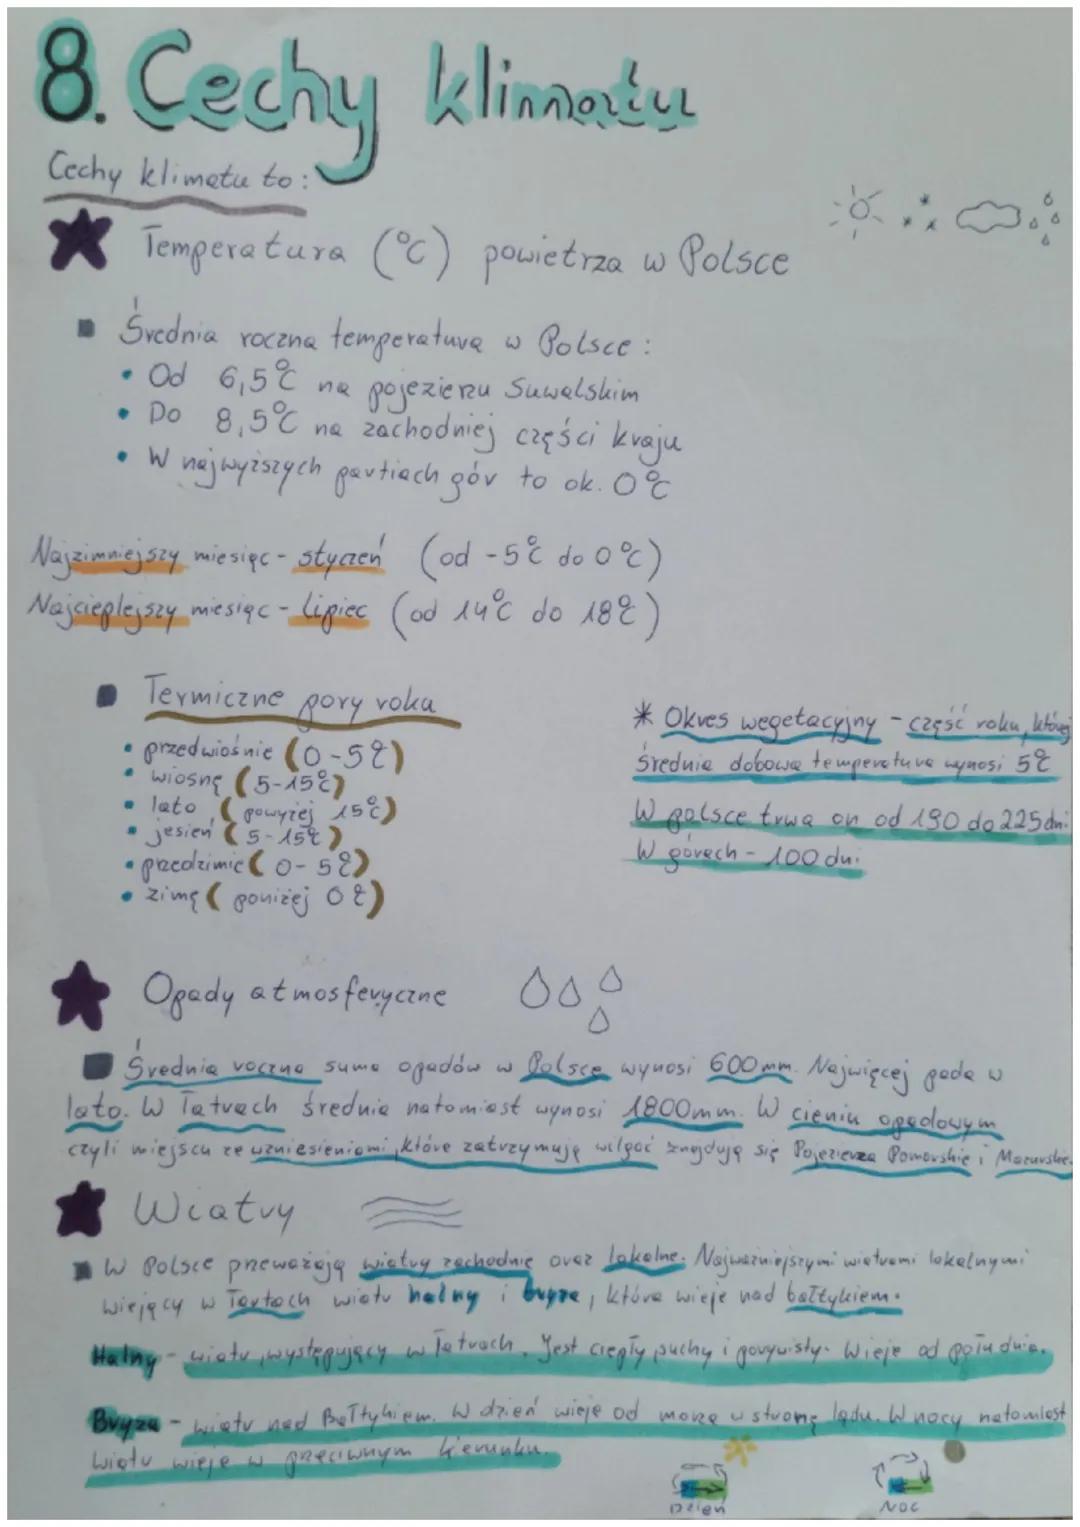 8. Cechy klimatu
Cechy klimatu to:
Temperatura (°C) powietrza w Polsce
Średnia roczna temperatura w Polsce:
• Od 6,5°C na pojezierzu Suwalskim
• Do 8,5°C na zachodniej części kraju
• W najwyższych partiach gór to ok. 0°C
Najzimniejszy miesiąc - styczeń (od -5°C do 0°C)
Najcieplejszy miesiąc - Lipiec (od 14°C do 18°C)
Termiczne pory roku
• przedwiośnie (0-5°C)
• wiosnę (5-15°C)
• lato (powyżej 15°C)
• jesień (5-15°C)
• przedzimie (0-5°C)
• zimę (poniżej 0°C)
* Okres wegetacyjny - część roku, której
średnia dobowa temperatura wynosi 5°C
W polsce trwa on od 190 do 225 dni
W górach - 100 dni
Opady atmosferyczne
Średnia roczna suma opadów w Polsce wynosi 600mm. Najwięcej pada w
lato. W Tatrach średnia natomiast wynosi 1800mm. W cieniu opadowym
czyli miejscu ze wzniesieniami, które zatrzymują wilgoć znajdują się Pojezierza Pomorskie i Mazurskie.
Wiatry
W Polsce przeważają wiatry zachodnie oraz lokalne. Najważniejszymi wiatrami lokalnymi
wiejący w Tartach wiatr halny i bryza, która wieje nad bałtykiem.
Halny - wiatr, występujący w Tatrach. Jest ciepły, suchy i porywisty. Wieje od południa.
Bryza - wiatr nad Bałtykiem. W dzień wieje od morza w stronę lądu. W nocy natomiast
wiatr wieje w przeciwnym kierunku.
Dzień
Noc